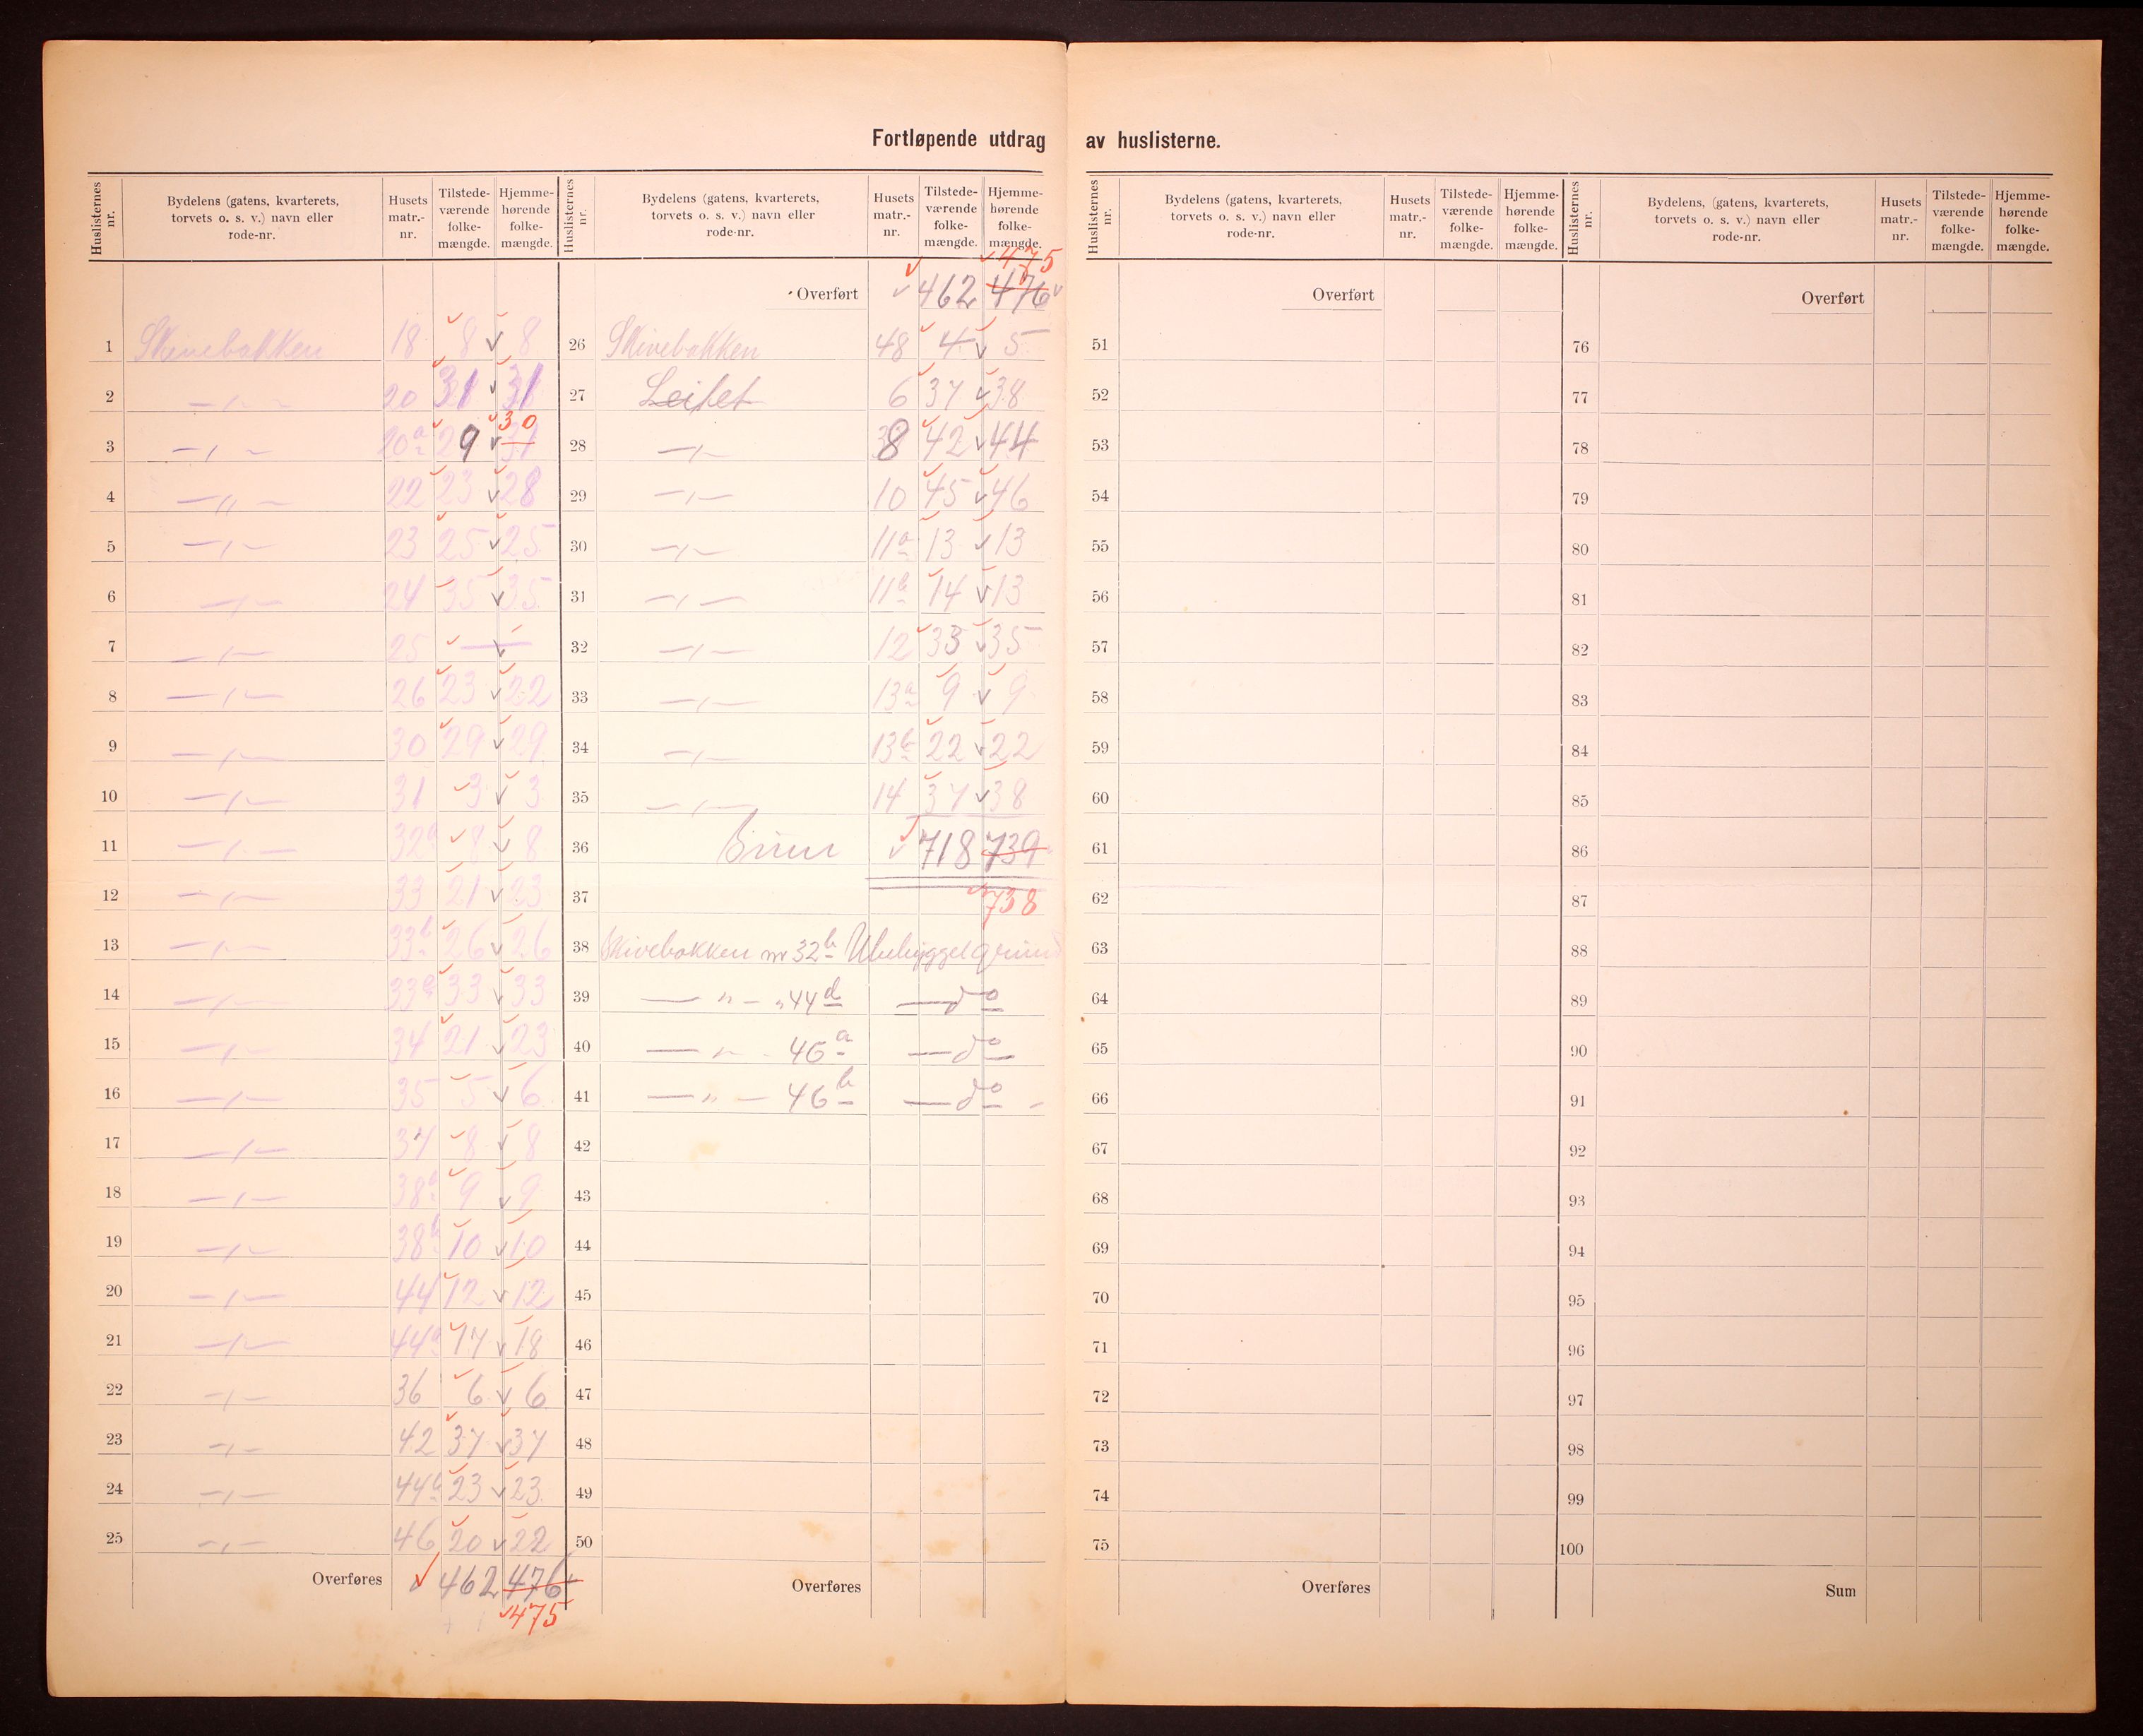 Fortløpende utdrag av huslisterne.
Huslisternes nr. Bydelens (gatens, kvarterets, torvets o. s. v.) navn eller rode-nr. Husets matr.-nr. Tilstede-værende folke-mængde. Hjemme-hørende folke-mængde.
1 Skivebakken 18 8 8
2 —„— 20 31 31
3 —„— 20a 29 31 30
4 —„— 22 23 28
5 —„— 23 25 25
6 —„— 24 35 35
7 —„— 25 —
8 —„— 26 23 22
9 —„— 30 29 29
10 —„— 31 3 3
11 —„— 32a 8 8
12 —„— 33 21 23
13 —„— 33b 26 26
14 —„— 33a 33 33
15 —„— 34 21 23
16 —„— 35 5 6
17 —„— 37 8 8
18 —„— 38a 9 9
19 —„— 38b 10 10
20 —„— 44 12 12
21 —„— 44a 17 18
22 —„— 36 6 6
23 —„— 42 37 37
24 —„— 44b 23 23
25 —„— 46 20 22
Overføres 462 476
475
Huslisternes nr. Bydelens (gatens, kvarterets, torvets o. s. v.) navn eller rode-nr. Husets matr.-nr. Tilstede-værende folke-mængde. Hjemme-hørende folke-mængde.
475
Overført 462 476
26 Skivebakken 48 4 5
27 Leitet 6 37 38
28 —„— 8 42 44
29 —„— 10 45 46
30 —„— 11a 13 13
31 —„— 11b 14 13
32 —„— 12 33 35
33 —„— 13a 9 9
34 —„— 13b 22 22
35 —„— 14 37 38
36 Sum 718 739
37 738
38 Skivebakken nr 32b Ubebygget grund
39 — „ — „ 44d — do
40 — „ — 46a — do
41 — „ — 46b — do —
42
43
44
45
46
47
48
49
50
Overføres
Huslisternes nr. Bydelens (gatens, kvarterets, torvets o. s. v.) navn eller rode-nr. Husets matr.-nr. Tilstede-værende folke-mængde. Hjemme-hørende folke-mængde.
Overført
51
52
53
54
55
56
57
58
59
60
61
62
63
64
65
66
67
68
69
70
71
72
73
74
75
Overføres
Huslisternes nr. Bydelens, (gatens, kvarterets, torvets o. s. v.) navn eller rode-nr. Husets matr.-nr. Tilstede-værende folke-mængde. Hjemme-hørende folke-mængde.
Overført
76
77
78
79
80
81
82
83
84
85
86
87
88
89
90
91
92
93
94
95
96
97
98
99
100
Sum